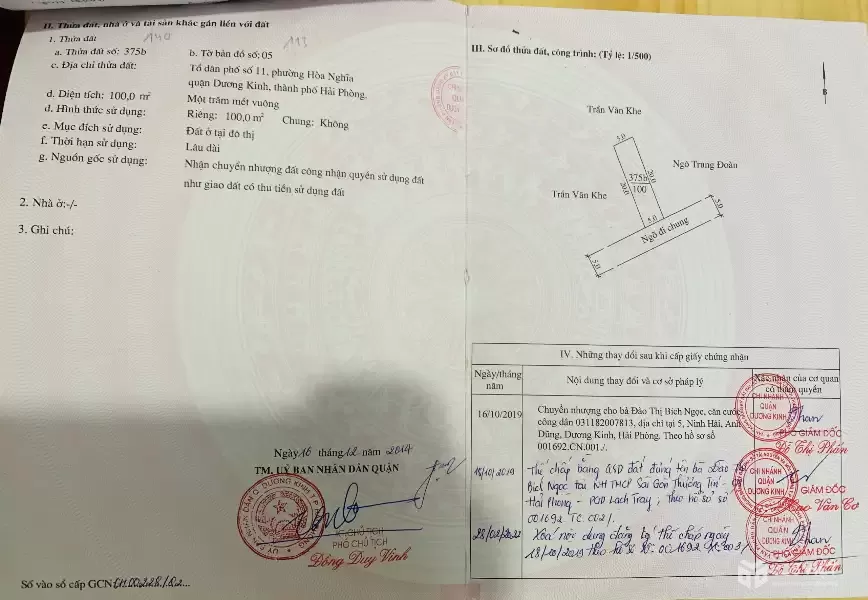 II. Thửa đất, nhà ở và tài sản khác gắn liền với đất
1. Thửa đất
140
113
a. Thửa đất số: 375b
b. Tờ bản đồ số: 05
c. Địa chỉ thửa đất:
Tổ dân phố số 11, phường Hòa Nghĩa
quận Dương Kinh, thành phố Hải Phòng.
d. Diện tích: 100,0 m²
Một trăm mét vuông
đ. Hình thức sử dụng:
Riêng: 100,0 m² Chung: Không
e. Mục đích sử dụng:
Đất ở tại đô thị
f. Thời hạn sử dụng:
Lâu dài
g. Nguồn gốc sử dụng:
Nhận chuyển nhượng đất công nhận quyền sử dụng đất
như giao đất có thu tiền sử dụng đất
2. Nhà ở:-/-
3. Ghi chú:
Ngày 16 tháng 12 năm 2014
TM. UỶ BAN NHÂN DÂN QUẬN
KT. CHỦ TỊCH
PHÓ CHỦ TỊCH
Đồng Duy Vinh
Số vào sổ cấp GCN:
III. Sơ đồ thửa đất, công trình: (Tỷ lệ: 1/500)
B
Trần Văn Khe
5.0
Ngô Trung Đoàn
20.0
375b
100
20.0
Trần Văn Khe
5.0
5.0
Ngõ đi chung
5.0
IV. Những thay đổi sau khi cấp giấy chứng nhận
Ngày/tháng năm
Nội dung thay đổi và cơ sở pháp lý
Xác nhận của cơ quan có thẩm quyền
16/10/2019
Chuyển nhượng cho bà Đào Thị Bích Ngọc, căn cước
công dân 031182007813, địa chỉ tại 5, Ninh Hải, Anh
Dũng, Dương Kinh, Hải Phòng. Theo hồ sơ số
001692.CN.001./.
CHI NHÁNH
QUẬN
DƯƠNG KINH
PHÓ GIÁM ĐỐC
Đỗ Thị Phấn
18/10/2019
Thế chấp bằng QSD đất đứng tên bà Đào Thị
Bích Ngọc tại NH TMCP Sài Gòn Thương Tín - CN
Hải Phòng - PGD Lạch Tray, theo hồ sơ số
001692.TC.002/.
CHI NHÁNH
QUẬN
DƯƠNG KINH
GIÁM ĐỐC
Cao Văn Cơ
28/02/2022
Xóa nội dung đăng ký thế chấp ngày
18/10/2019 theo hồ sơ số: 001692.XC.003/.
CHI NHÁNH
QUẬN
DƯƠNG KINH
PHÓ GIÁM ĐỐC
Đỗ Thị Phấn